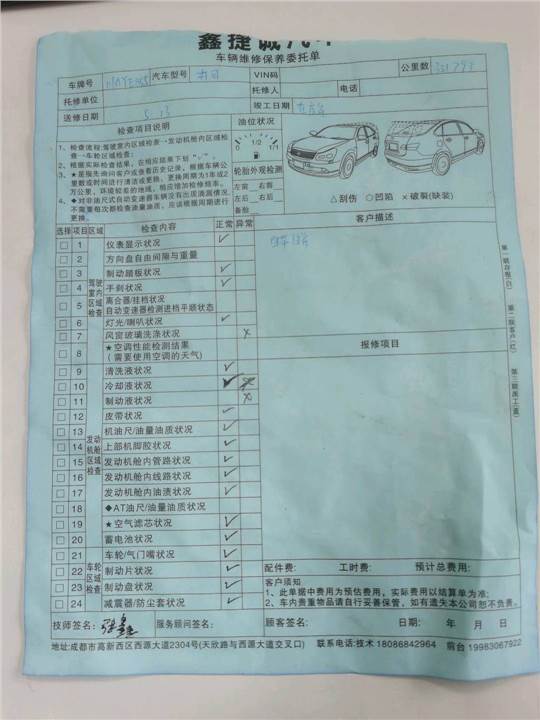 鑫捷诚汽车
车辆维修保养委托单
公里数
车牌号 汽车型号 VIN码
托修单位 托修人 电话
送修日期 5.13 竣工日期
检查项目说明 油位状况
1/2 1/1
1、检查流程:驾驶室内区域检查→发动机舱内区域检查→车轮区域检查;
2、根据实际检查结果,在相应结果下划“✓”。
3、★是服务询问客户或查看历史记录,根据车辆公里数或时间进行清洁或更换,更换周期为1年或2万公里,环境较差的地域,相应增加检修频率。
4、◆对非油尺式自动变速器车辆没有出现滴漏情况,不需要每次都检查油量油质,应该根据周期进行更换。
轮胎外观检测
左前 右前
左后 右后
备胎
△刮伤 ○凹陷 ×破裂(缺装)
选择 项目 区域 检查内容 正常 异常 客户描述
驾驶室内区域检查
□ 1 仪表显示状况 ✓
□ 2 方向盘自由间隙与重量
□ 3 制动踏板状况 ✓
□ 4 手刹状况 ✓
□ 5 离合器/挂档状况
自动变速器检测进档平顺状态
□ 6 灯光/喇叭状况 ✓
□ 7 风窗玻璃洗涤状况 ×
□ 8 ★空调性能检测结果
(需要使用空调的天气)
报修项目
发动机舱区域检查
□ 9 清洗液状况 ✓
□ 10 冷却液状况 ✓
□ 11 制动液状况 ×
□ 12 皮带状况 ✓
□ 13 机油尺/油量油质状况 ✓
□ 14 上部机脚胶状况 ✓
□ 15 发动机舱内管路状况 ✓
□ 16 发动机舱内线路状况 ✓
□ 17 发动机舱内油渍状况 ✓
□ 18 ◆AT油尺/油量油质状况
□ 19 ★空气滤芯状况 ✓
□ 20 蓄电池状况 ✓
车轮区域检查
□ 21 车轮/气门嘴状况 ✓
□ 22 制动片状况 ✓
□ 23 制动盘状况 ✓
□ 24 减震器/防尘套状况 ✓
第一联存根(白) 第二联客户(红) 第三联施工(蓝)
配件费: 工时费: 预计总费用:
客户须知
1、此单据中费用为预估费用,实际费用以结算单为准;
2、车内贵重物品请自行妥善保管,如有遗失本公司恕不负责。
技师签名: 服务顾问签名: 顾客签名: 日期: 年 月 日
地址:成都市高新西区西源大道2304号(天欣路与西源大道交叉口) 联系电话:技术 18086842964 前台 19983067922